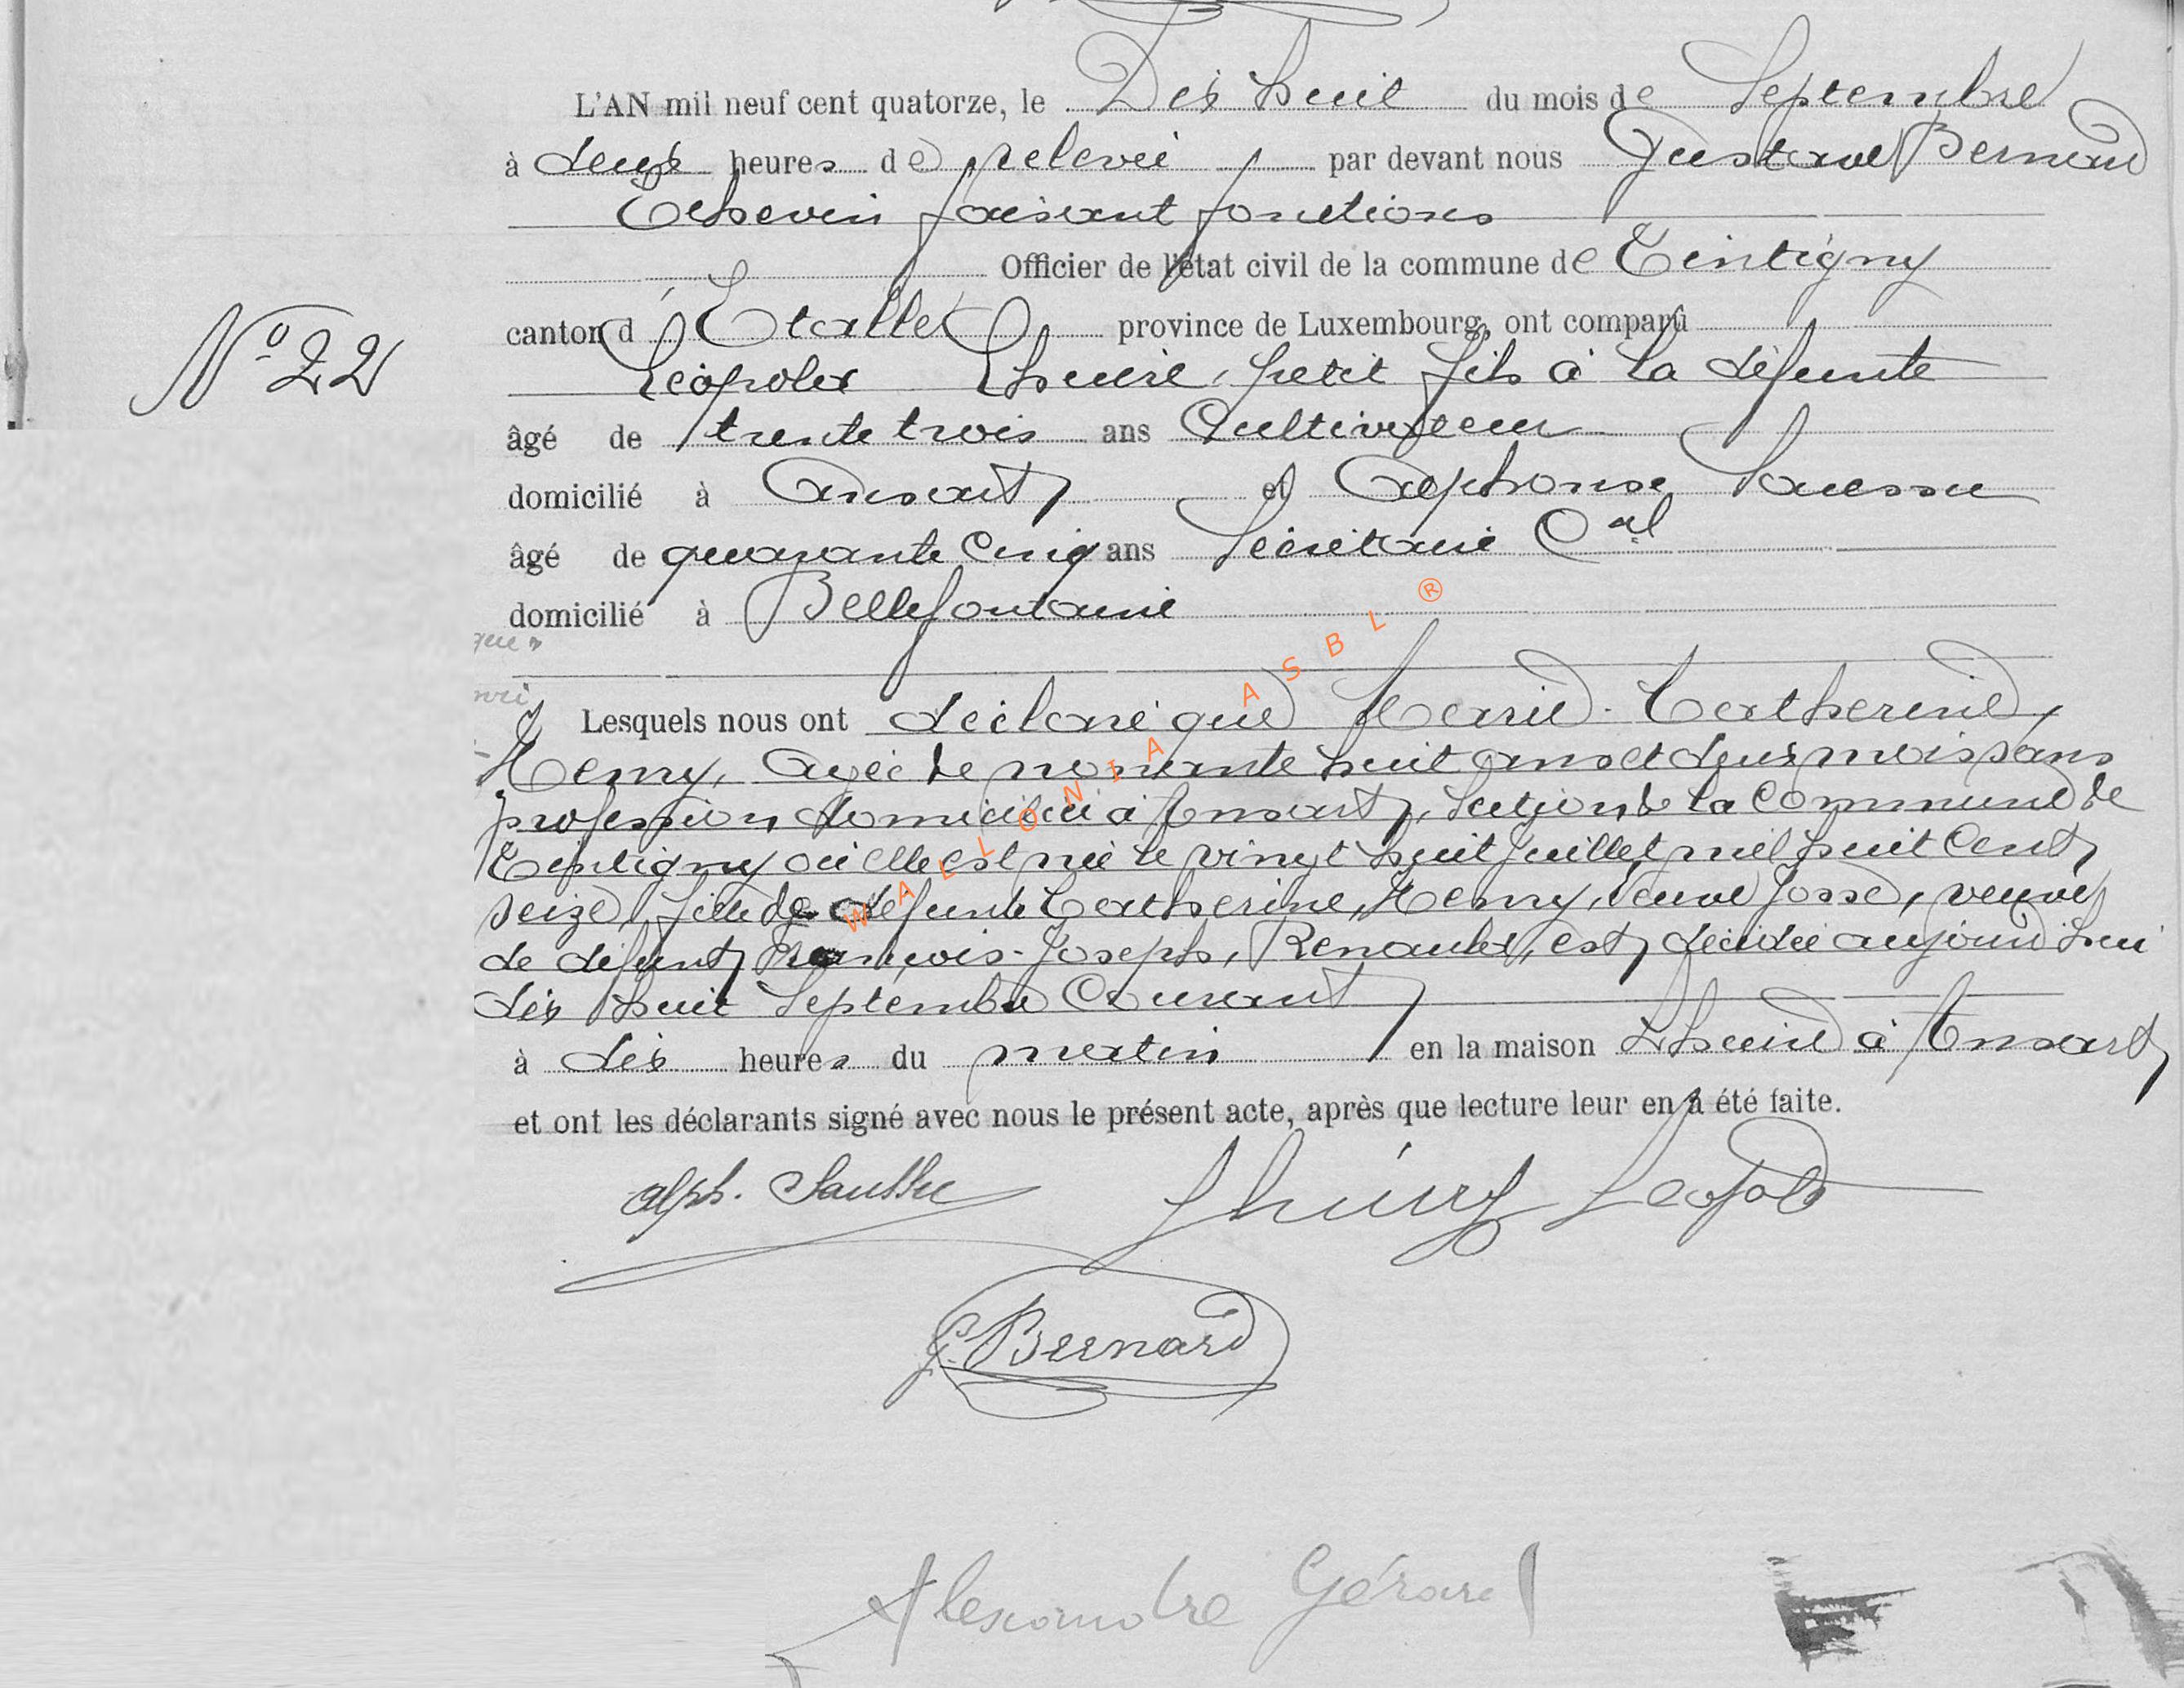 L'AN mil neuf cent quatorze, le Dix huit du mois de Septembre
à deux heures de relevée par devant nous Gustave Bernard
Echevin faisant fonctions
Officier de l'état civil de la commune de Tintigny
N° 22
canton d'Etalle province de Luxembourg, ont comparû
Léopold Lhuire, petit fils à la défunte
âgé de trente trois ans Cultivateur
domicilié à Ansart et Alphonse Saussu
âgé de quarante cinq ans Secrétaire Cal
domicilié à Bellefontaine
Lesquels nous ont déclaré que Marie-Catherine,
Henry, agée de nonante huit ans et deux mois sans
profession domiciliée à Ansart, Section de la Commune de
Tintigny où elle est née le vingt huit Juillet mil huit Cent
seize, fille de défunte Catherine, Henry, veuve Josse, veuve
de défunt François-Joseph, Renauld, est décédée aujourd'hui
dix huit Septembre Courant
à dix heures du matin en la maison Lhuire à Ansart
et ont les déclarants signé avec nous le présent acte, après que lecture leur en a été faite.
alph. Saussu Lhuire Léopold
G. Bernard
Alexandre Gérard
WALLONIA ASBL ®